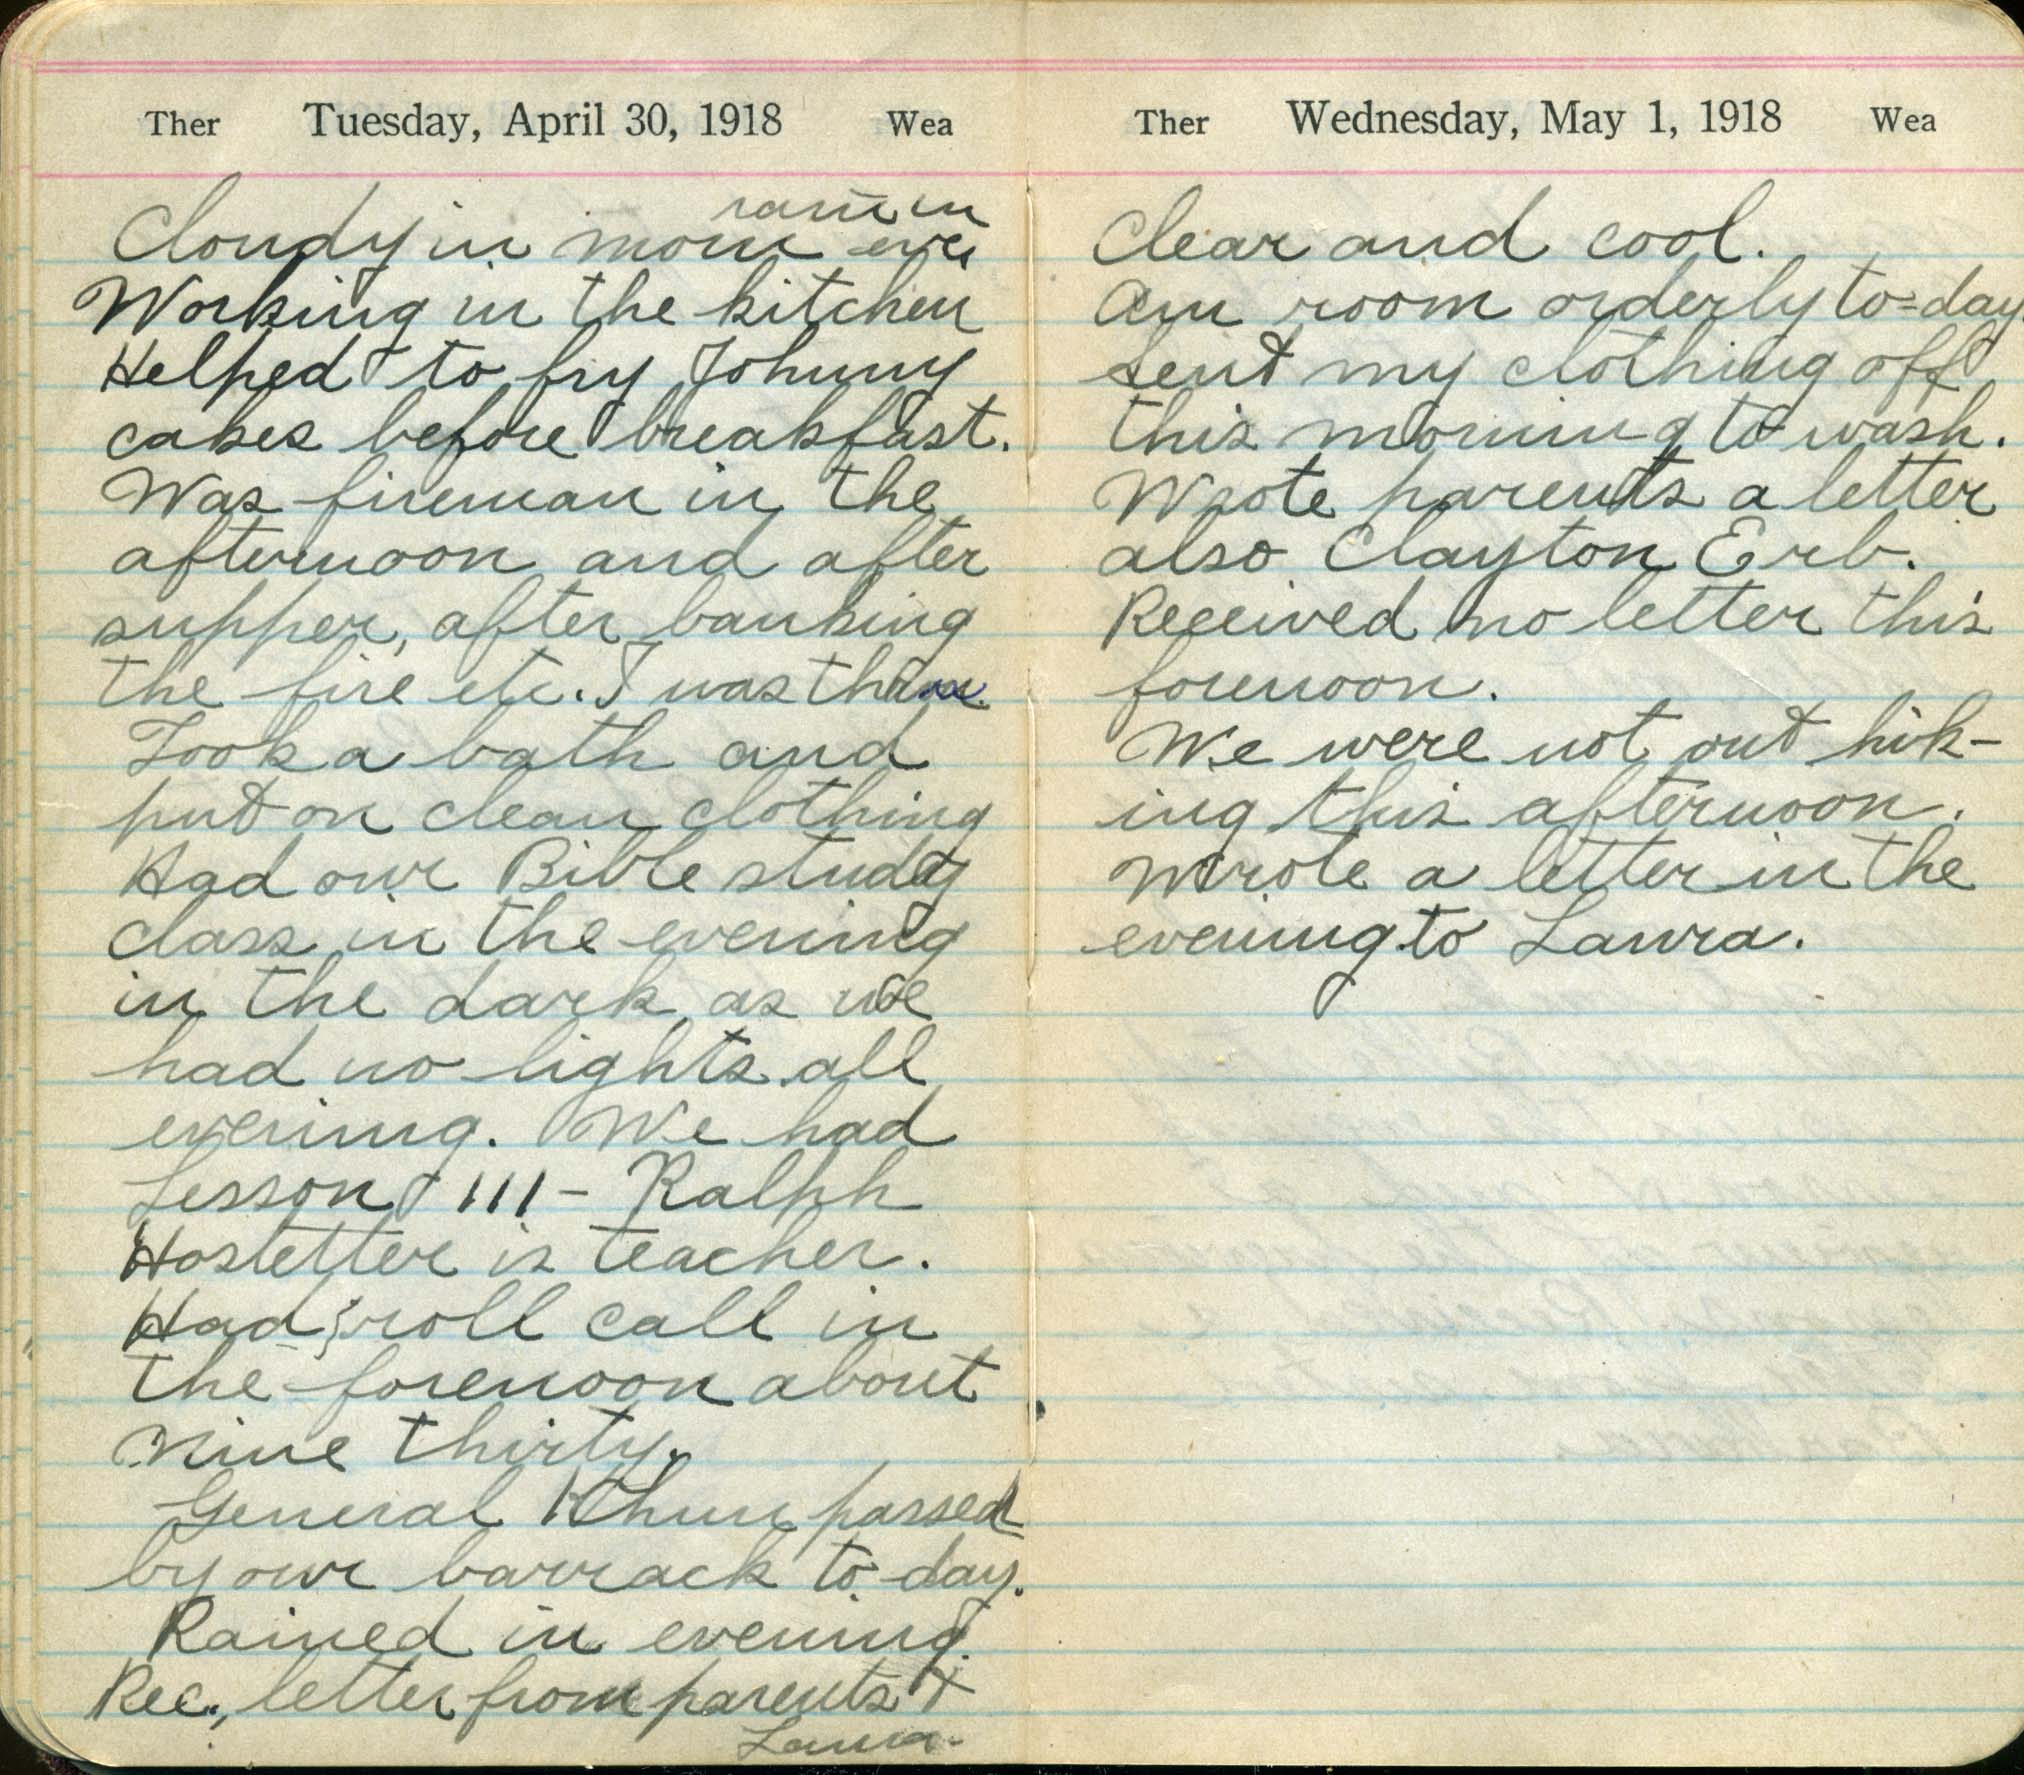 Ther Tuesday, April 30, 1918 Wea
rain in
Cloudy in morn eve.
Working in the kitchen
Helped to fry Johnny
cakes before breakfast.
Was fireman in the
afternoon and after
supper, after banking
the fire etc. I was thru.
Took a bath and
put on clean clothing
Had our Bible study
class in the evening
in the dark, as we
had no lights all
evening. We had
Lesson III - Ralph
Hostetter is teacher.
Had roll call in
the forenoon about
Nine thirty.
General Khun passed
by our barrack to-day.
Rained in evening.
Rec., letter from parents +
Laura.
Ther Wednesday, May 1, 1918 Wea
Clear and cool.
Am room orderly to-day.
Sent my clothing off
this morning to wash.
Wrote parents a letter
also Clayton Erb.
Received no letter this
forenoon.
We were not out hik-
ing this afternoon.
Wrote a letter in the
evening to Laura.